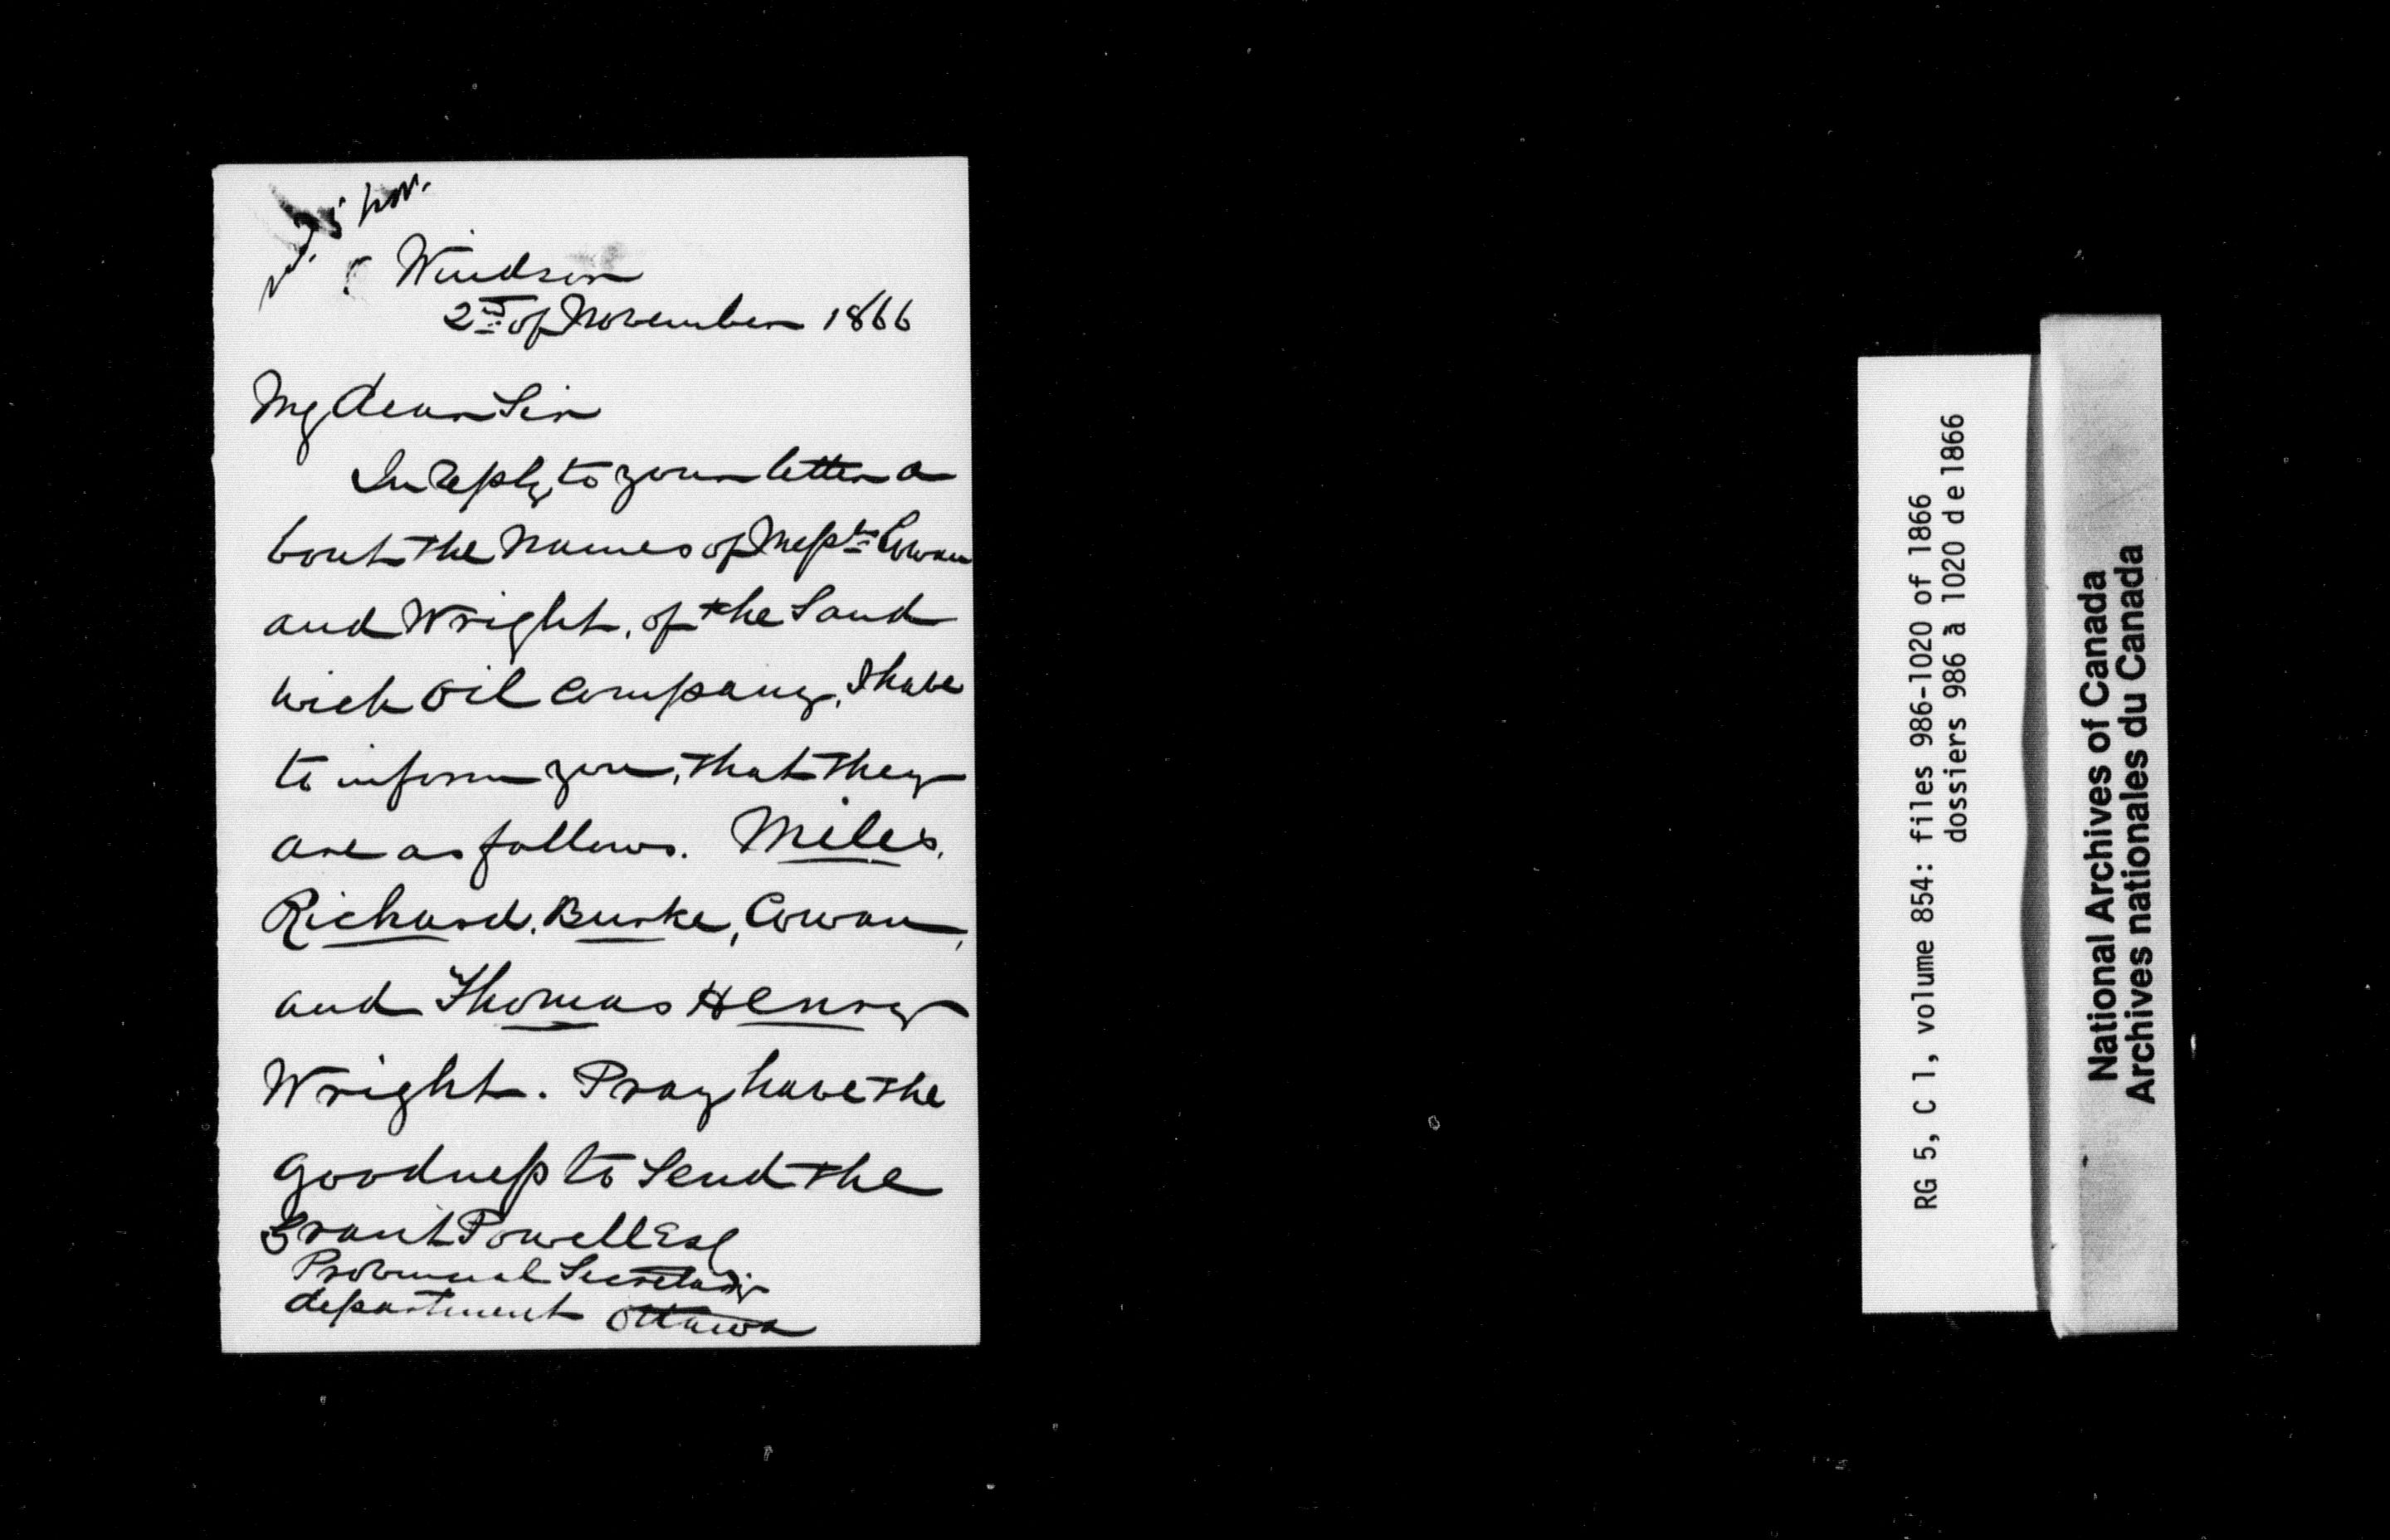 5 Nov.
Windsor
2nd of November 1866
My dear Sir
In Reply, to your letter a
bout the names of Messrs Cowan
and Wright, of the Sand
wich Oil Company, I have
to inform you, that they
are as follows. Miles,
Richard, Burke, Cowan,
and Thomas Henry
Wright. Pray have the
goodness to Send the
Grant Powell Esq
Provincial Secretary
department Ottawa
RG 5, C 1, volume 854: files 986-1020 of 1866
dossiers 986 à 1020 d e 1866
National Archives of Canada
Archives nationales du Canada